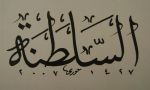 السلطنة
٢٠٠٧ ١٤٢٧